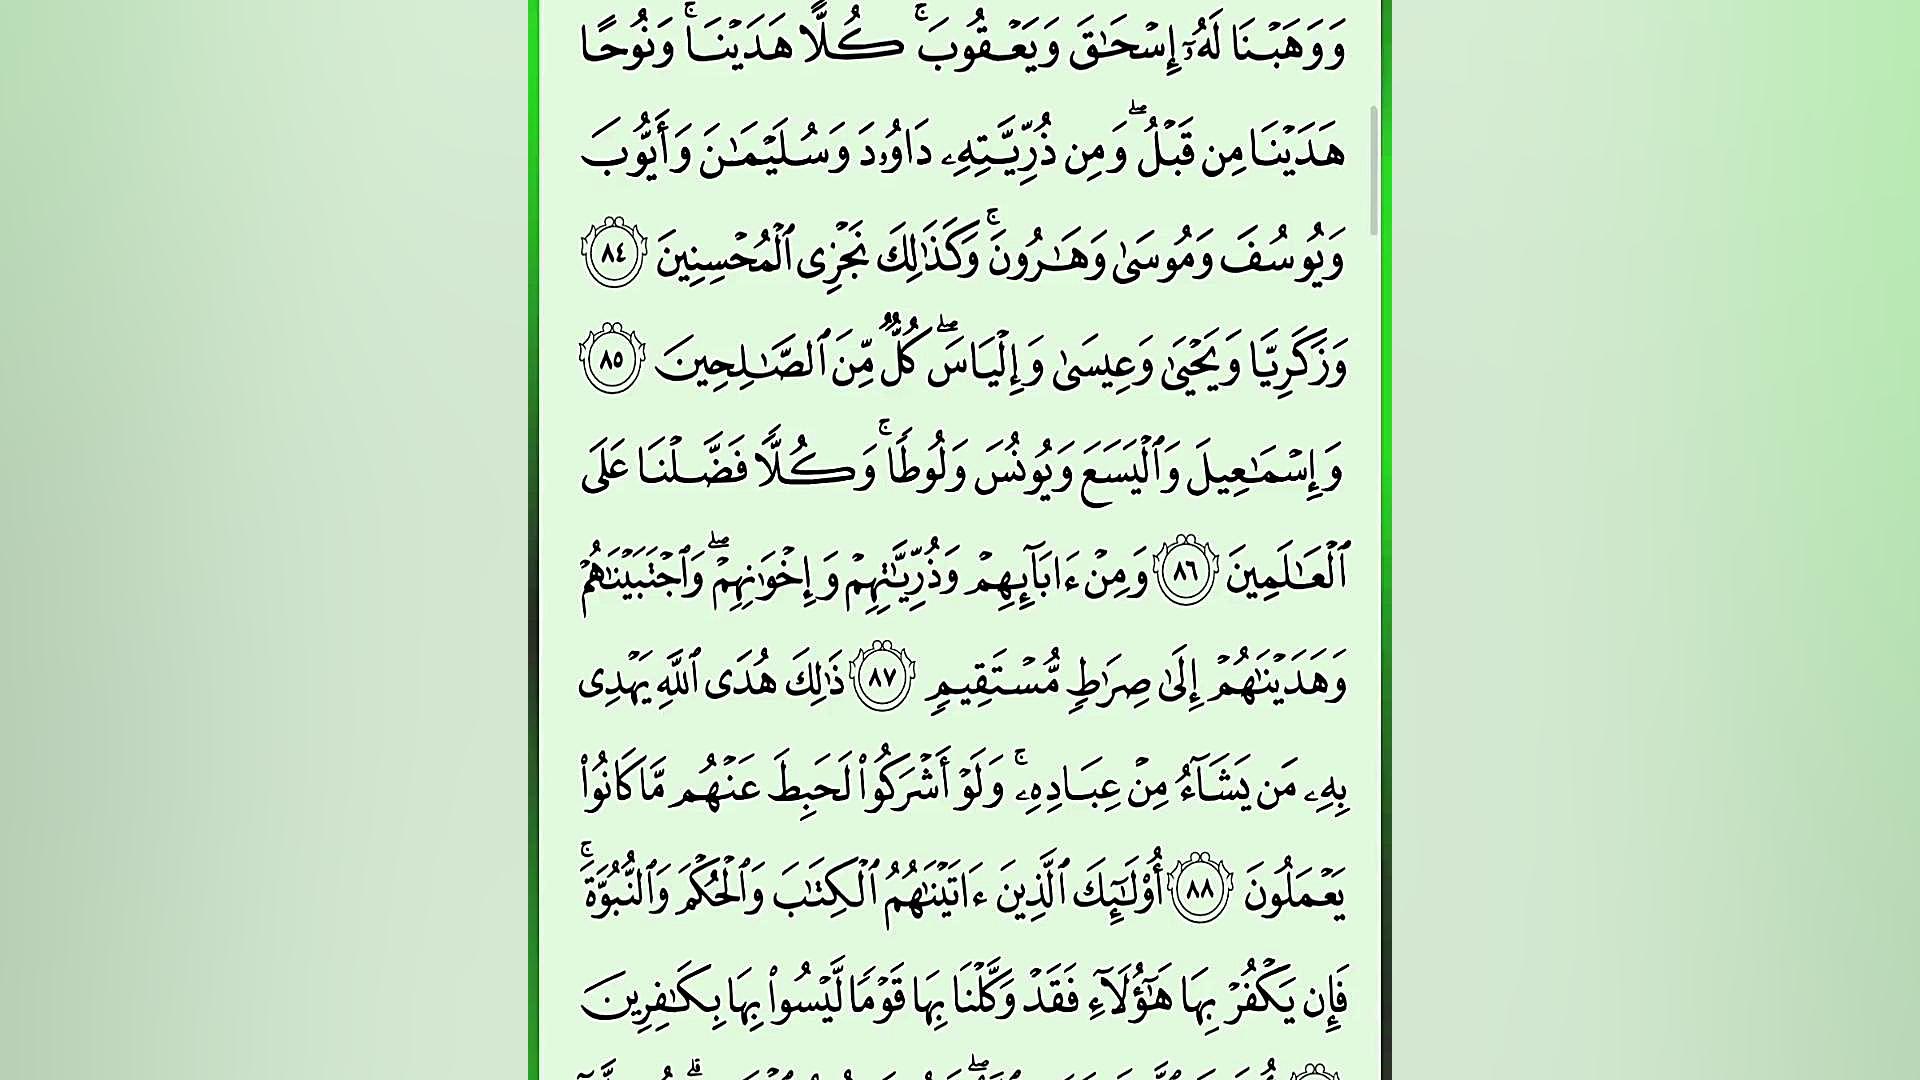 وَوَهَبۡنَا لَهُۥٓ إِسۡحَٰقَ وَيَعۡقُوبَۚ كُلًّا هَدَيۡنَاۚ وَنُوحًا
هَدَيۡنَا مِن قَبۡلُۖ وَمِن ذُرِّيَّتِهِۦ دَاوُۥدَ وَسُلَيۡمَٰنَ وَأَيُّوبَ
وَيُوسُفَ وَمُوسَىٰ وَهَٰرُونَۚ وَكَذَٰلِكَ نَجۡزِى ٱلۡمُحۡسِنِينَ ٨٤
وَزَكَرِيَّا وَيَحۡيَىٰ وَعِيسَىٰ وَإِلۡيَاسَۖ كُلّٞ مِّنَ ٱلصَّٰلِحِينَ ٨٥
وَإِسۡمَٰعِيلَ وَٱلۡيَسَعَ وَيُونُسَ وَلُوطٗاۚ وَكُلّٗا فَضَّلۡنَا عَلَى
ٱلۡعَٰلَمِينَ ٨٦ وَمِنۡ ءَابَآئِهِمۡ وَذُرِّيَّٰتِهِمۡ وَإِخۡوَٰنِهِمۡۖ وَٱجۡتَبَيۡنَٰهُمۡ
وَهَدَيۡنَٰهُمۡ إِلَىٰ صِرَٰطٖ مُّسۡتَقِيمٖ ٨٧ ذَٰلِكَ هُدَى ٱللَّهِ يَهۡدِى
بِهِۦ مَن يَشَآءُ مِنۡ عِبَادِهِۦۚ وَلَوۡ أَشۡرَكُواْ لَحَبِطَ عَنۡهُم مَّا كَانُواْ
يَعۡمَلُونَ ٨٨ أُوْلَٰٓئِكَ ٱلَّذِينَ ءَاتَيۡنَٰهُمُ ٱلۡكِتَٰبَ وَٱلۡحُكۡمَ وَٱلنُّبُوَّةَۚ
فَإِن يَكۡفُرۡ بِهَا هَٰٓؤُلَآءِ فَقَدۡ وَكَّلۡنَا بِهَا قَوۡمٗا لَّيۡسُواْ بِهَا بِكَٰفِرِينَ